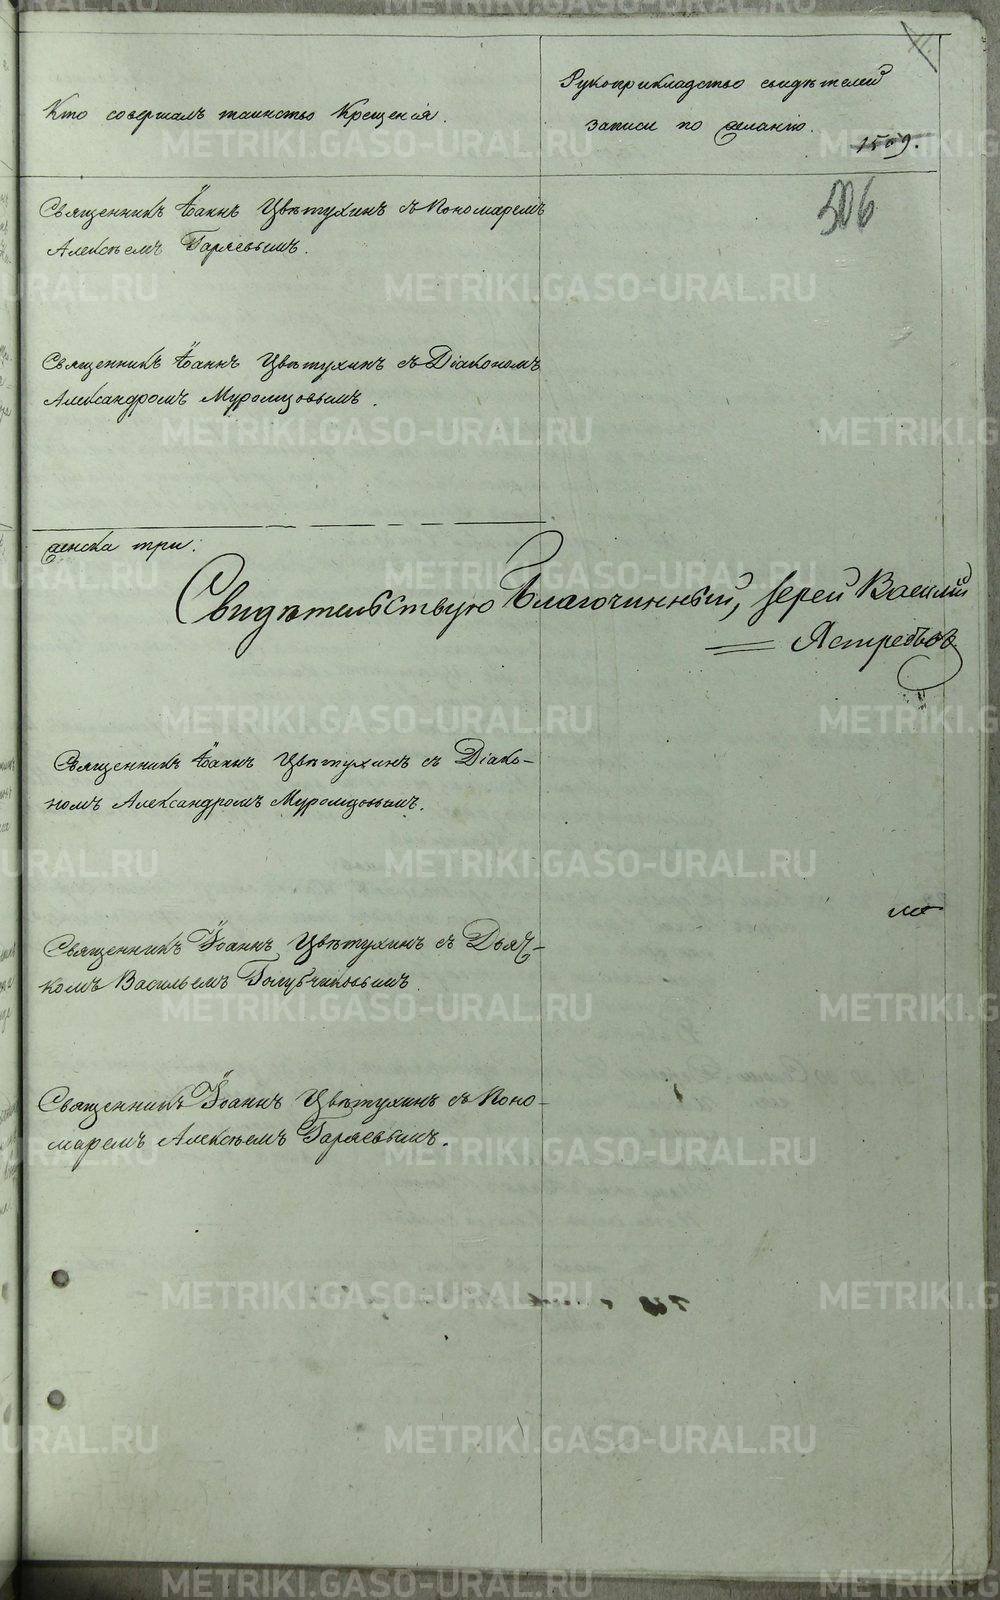 Кто совершалъ таинство Крещенія.
Рукоприкладство свидѣтелей
записи по желанію.
1509.
506
Священникъ Іоаннъ Цвѣтухинъ съ Пономаремъ
Алексѣемъ Гаряевымъ.
Священникъ Іоаннъ Цвѣтухинъ съ Діакономъ
Александромъ Муромцовымъ.
женска три.
Свидѣтельствую Благочинный, Іерей Василій
Ястребовъ
Священникъ Іоаннъ Цвѣтухинъ съ Діако-
номъ Александромъ Муромцовымъ.
Священникъ Іоаннъ Цвѣтухинъ съ Дьяч-
комъ Васильемъ Голубчиковымъ.
Священникъ Іоаннъ Цвѣтухинъ съ Поно-
маремъ Алексѣемъ Гаряевымъ.
METRIKI.GASO-URAL.RU